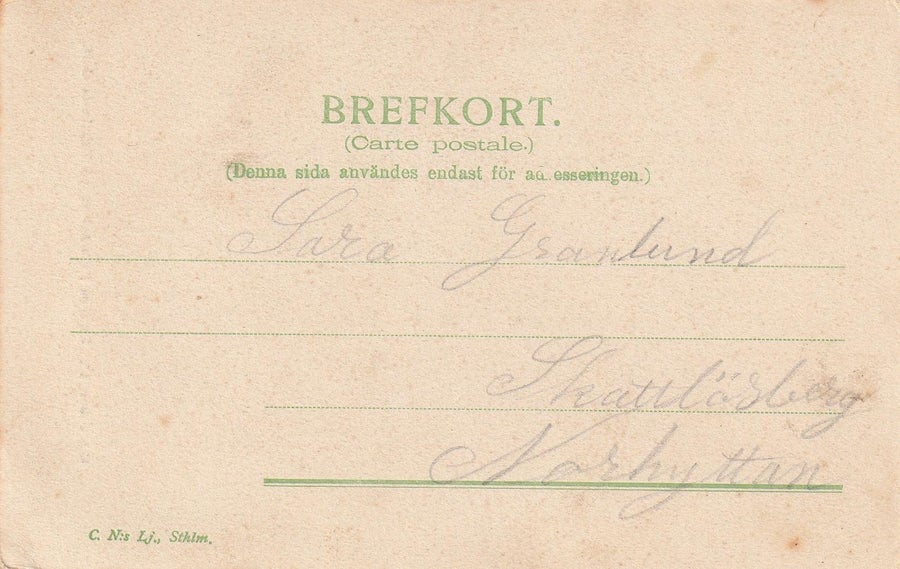 BREFKORT.
(Carte postale.)
(Denna sida användes endast för ad esseringen.)
Sara Granlund
Skattlösberg
Norhyttan
C. N:s Lj., Sthlm.